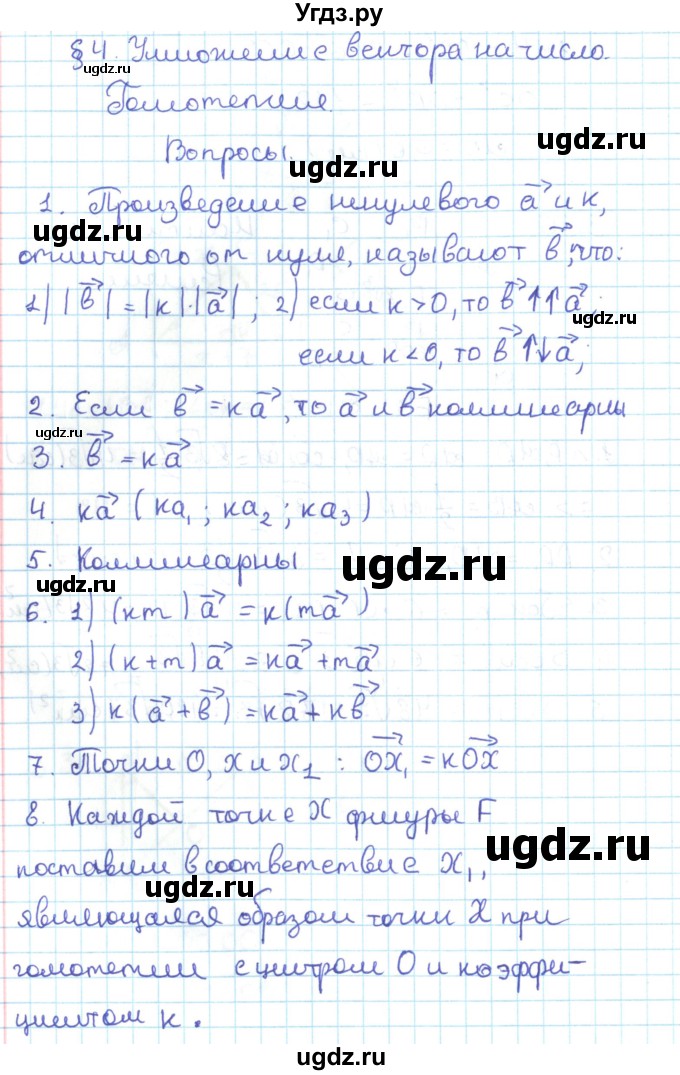 Угдз.ру
§4. Умножение вектора на число.
ugdz.ru
Гомотетия.
Вопросы.
ugdz.ru
ugdz.ru
1. Произведение ненулевого a⃗ и к,
ugdz.ru
отличного от нуля, называют b⃗, что:
1) |b⃗| = |к|·|a⃗| ; 2) если к > 0, то b⃗↑↑a⃗;
ugdz.ru
если к < 0, то b⃗↑↓a⃗;
2. Если b⃗ = кa⃗, то a⃗ и b⃗ коллинеарны
ugdz.ru
3. b⃗ = кa⃗
4. кa⃗ (кa₁; кa₂; кa₃)
5. Коллинеарны
ugdz.ru
ugdz.ru
6. 1) (кm)a⃗ = к(ma⃗)
2) (к+m)a⃗ = кa⃗+ma⃗
ugdz.ru
3) к(a⃗+b⃗) = кa⃗+кb⃗
7. Точки O, x и x₁ : OX₁⃗ = кOX⃗
8. Каждой точке X фигуры F
ugdz.ru
поставим в соответствие X₁,
ugdz.ru
являющаяся образом точки X при
гомотетии с центром O и коэффи-
циентом к.
ugdz.ru
ugdz.ru